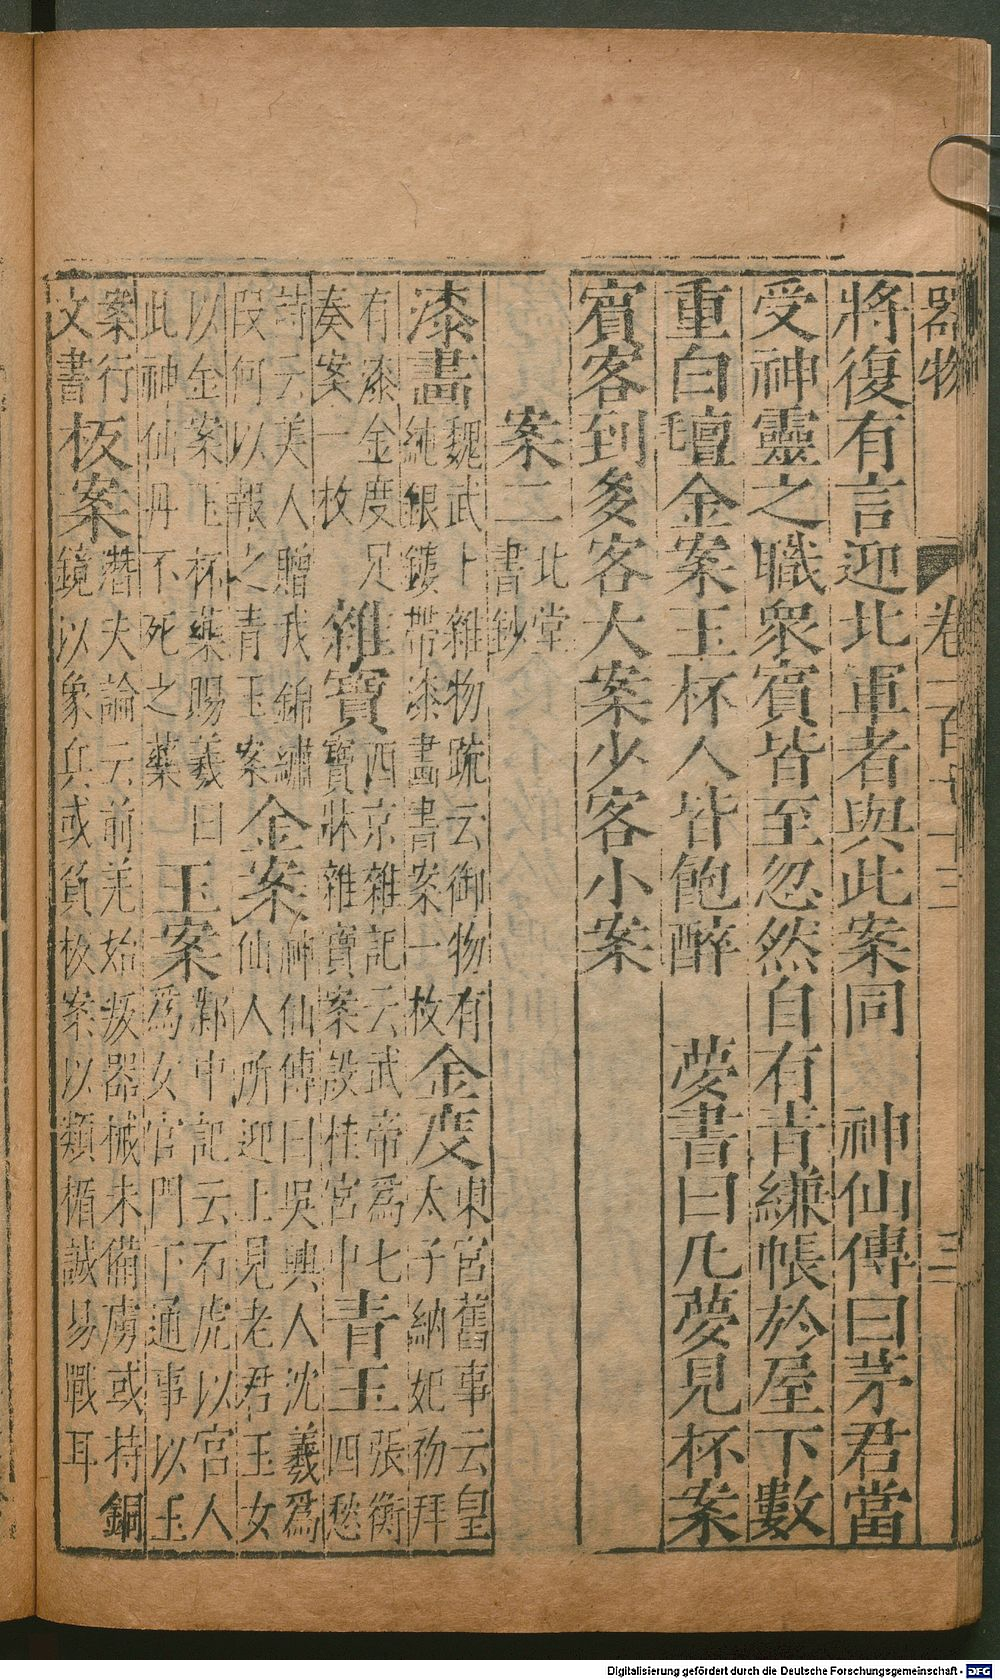 器物 卷一百七十三 三
將復有言迎北軍者與此案同 神仙傳曰茅君當
受神靈之職衆賓皆至忽然自有青縑帳於屋下數
重白氊金案玉杯人皆飽醉 夢書曰凡夢見杯案
賓客到多客大案少客小案
案二 北堂書鈔
漆畫 魏武上雜物疏云御物有純銀鏤帶漆畫書案一枚 金度 東宮舊事云皇太子納妃初拜
有漆金度足奏案一枚 雜寶 西京雜記云武帝爲七寶牀雜寶案設桂宮中 青玉 張衡四愁
詩云美人贈我錦繡段何以報之青玉案 金案 神仙傳曰吳興人沈羲爲仙人所迎上見老君玉女
以金案玉杯藥賜羲曰此神仙丹不死之藥 玉案 鄴中記云石虎以宮人爲女官門下通事以玉
案行文書 板案 潛夫論云前羌始叛器械未備虜或持銅鏡以象兵或負板案以類楯誠易戰耳
Digitalisierung gefördert durch die Deutsche Forschungsgemeinschaft - DFG